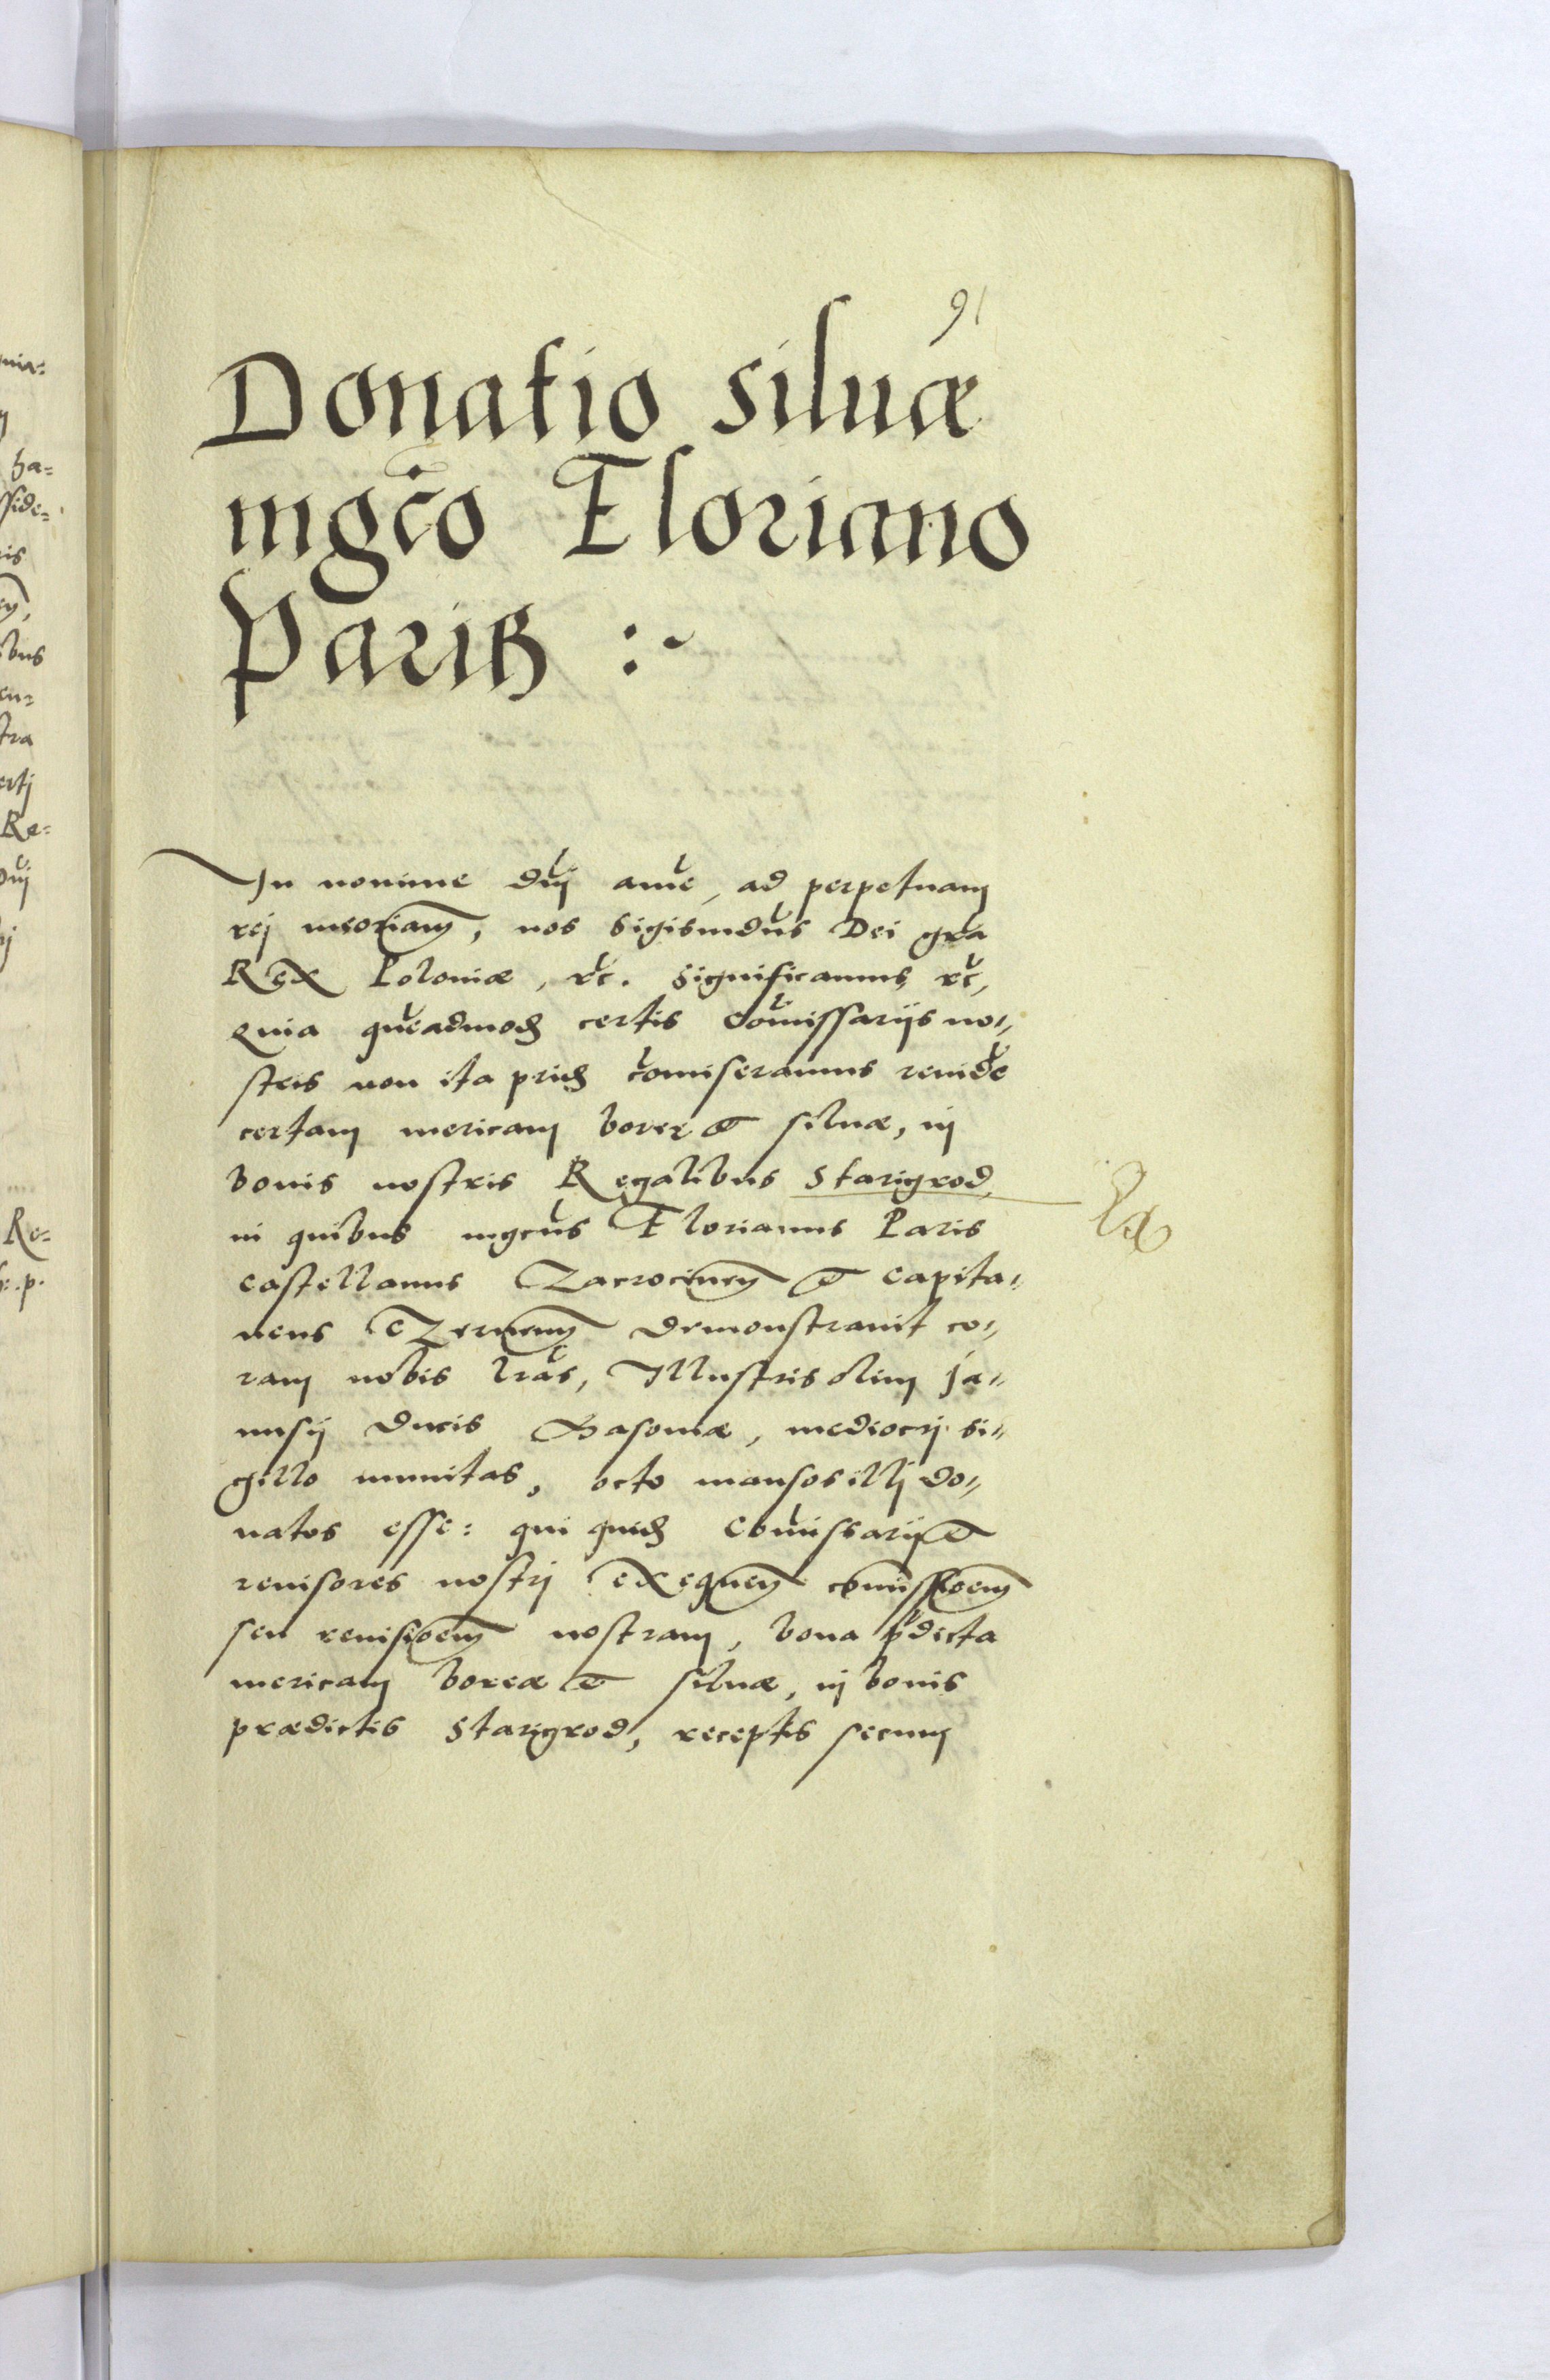 91
Donatio siluæ
mgco Floriano
Pariß :~
In nomine dnj ame, ad perpetuam
rej meoriam, nos Sigismdus Dei gra
Rex Poloniæ, etc. Significamus etc,
Quia queadmod certis Comissarijs no„
stris non ita prid comiseramus reuide
certam mericam boreæ et siluæ, in
bonis nostris Regalibus Starigrod,
in quibus mgcus Florianus Paris
castellanus Zacrocimen et capita„
neus Czernen demonstrauit co„
ram nobis lras, Illustris olim Ja„
nusij Ducis Masouiæ, mediocrj si„
gillo munitas, octo mansos illj do„
natos esse: qui quid Comissarij et
reuisores nostrj exequen comissioem
seu reuisioem nostram, bona pdicta
mericam boreæ et siluæ, in bonis
prædictis Starigrod, receptis secum